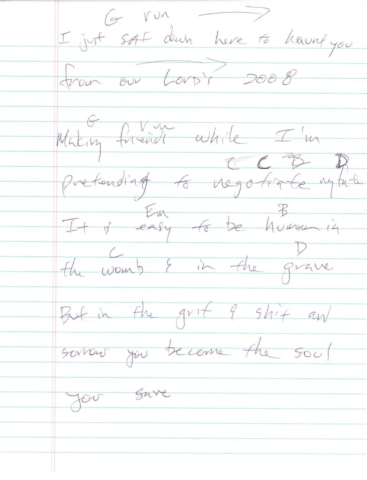 G run
I just sat down here to haunt you
from our Lord's 2008
G run
Making friends while I'm
C C B D
pretending to negotiate my fate
Em B
It is easy to be human in
C D
the womb & in the grave
But in the grit & shit and
sorrow you become the soul
you save